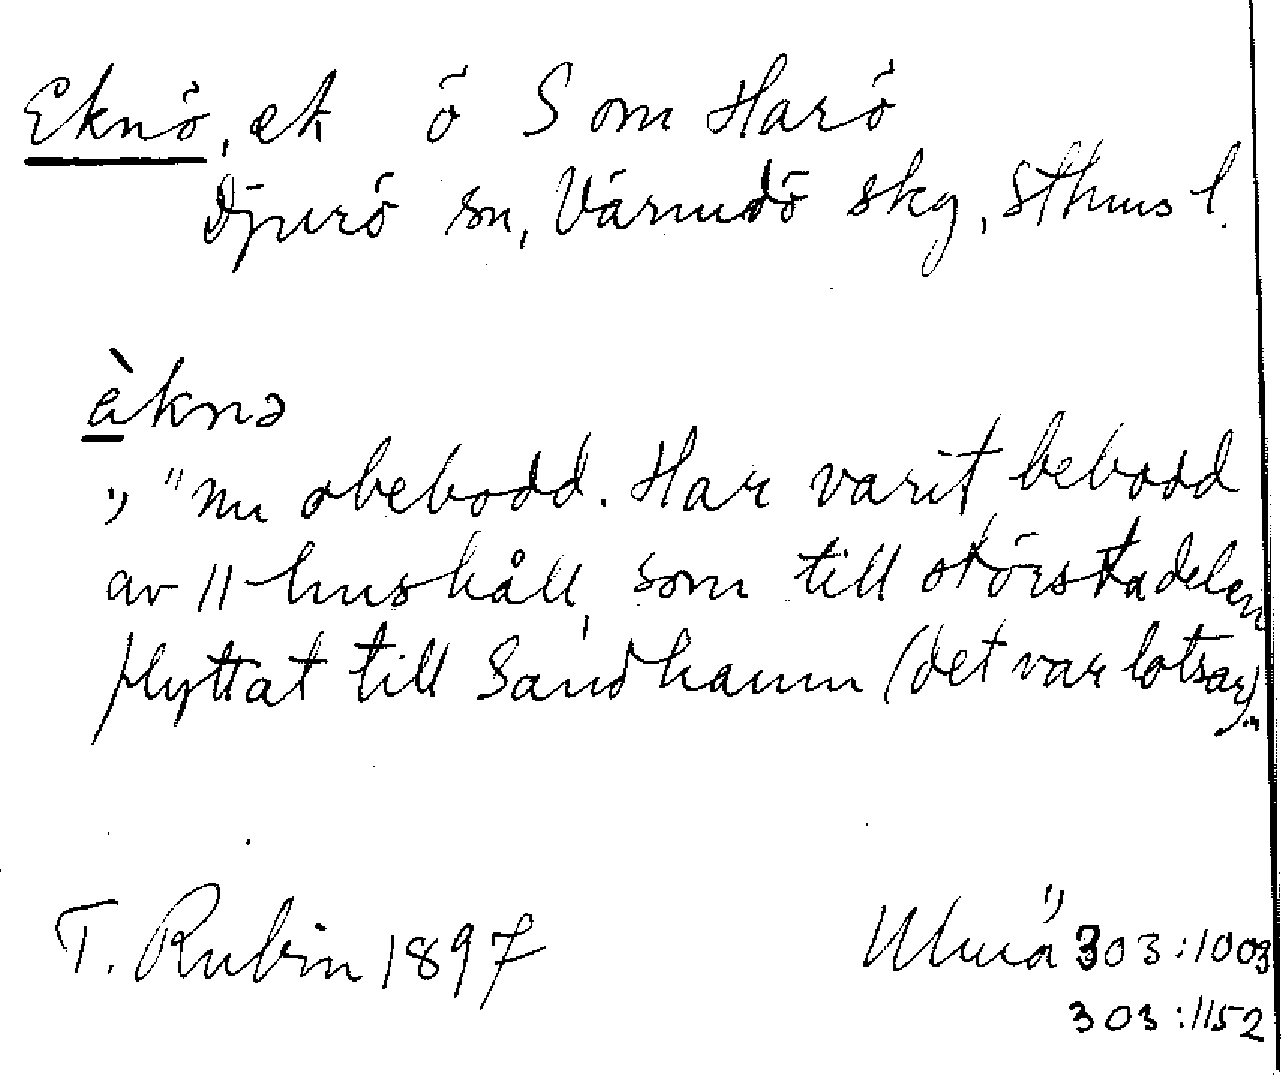 Eknö, ek ö S om Harö
Djurö sn, Värmdö skg, Sthms l.
èknə
" "Nu obebodd. Har varit bebodd
av 11 hushåll, som till största delen
flyttat till Sandhamn (det var lotsar)."
T. Rubin 1897 Ulmä 303:1003
303:1152